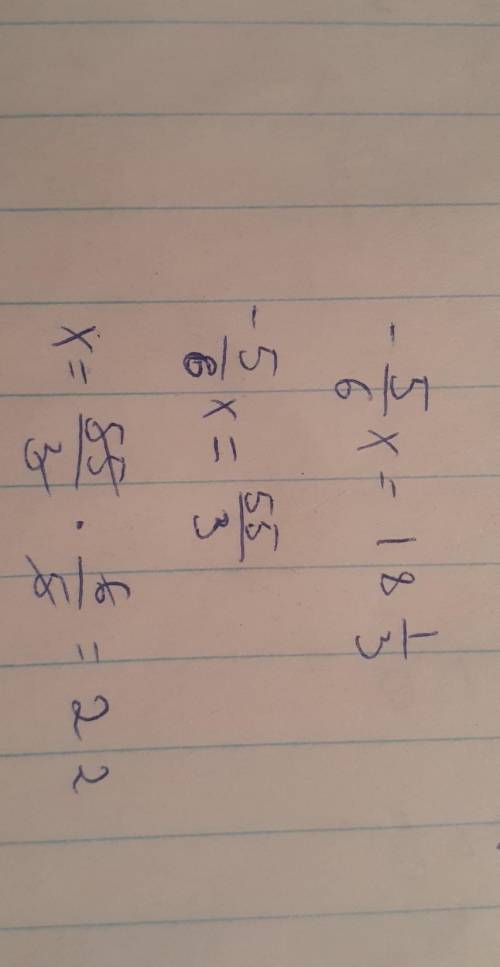 -5/6 x = 18 1/3
-5/6 x = 55/3
x = 55/3 · 6/5 = 22